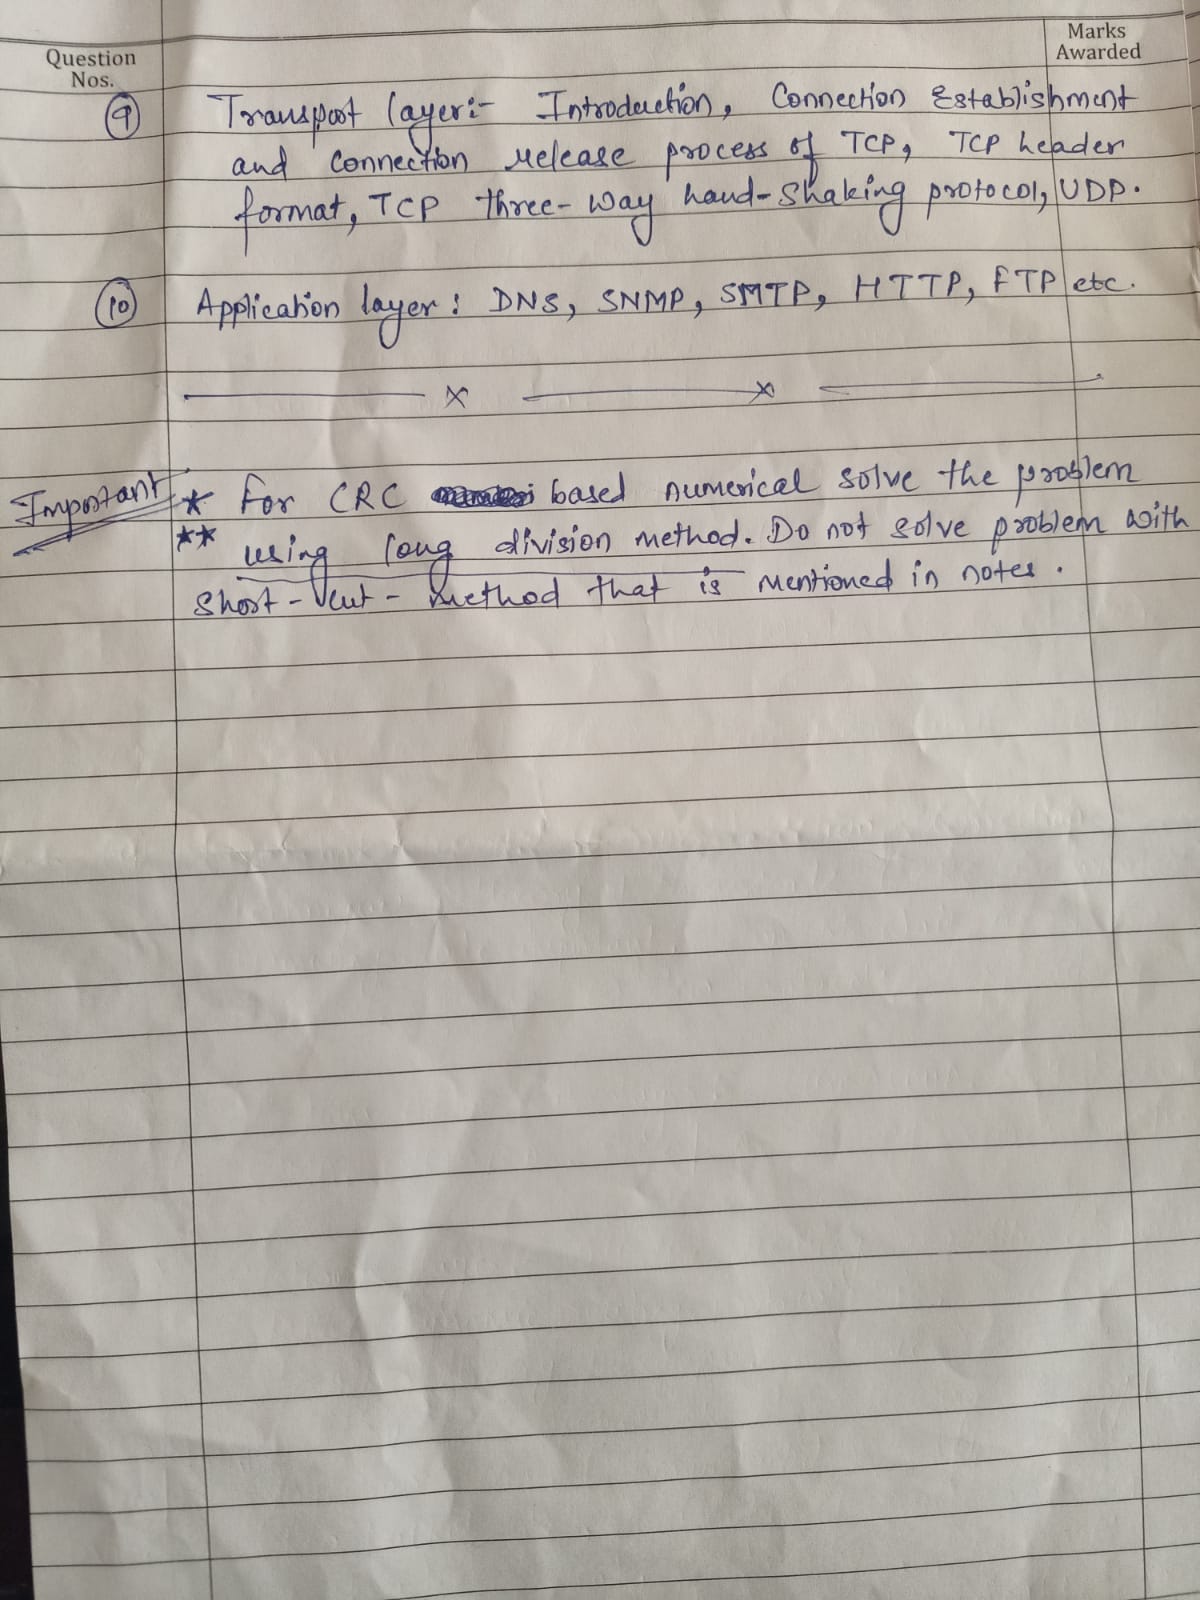 Question Nos.
Marks Awarded
9 Transport layer:- Introduction, Connection Establishment
and connection release process of TCP, TCP header
format, TCP three-way hand-shaking protocol, UDP.
10 Application layer: DNS, SNMP, SMTP, HTTP, FTP etc.
x x
Important * For CRC based numerical solve the problem
** using long division method. Do not solve problem with
short-cut-method that is mentioned in notes.